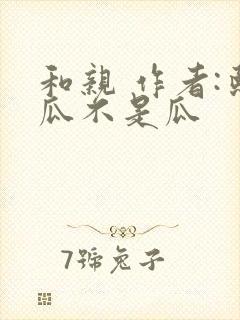 和親 作者:
瓜不是瓜
7號兔子